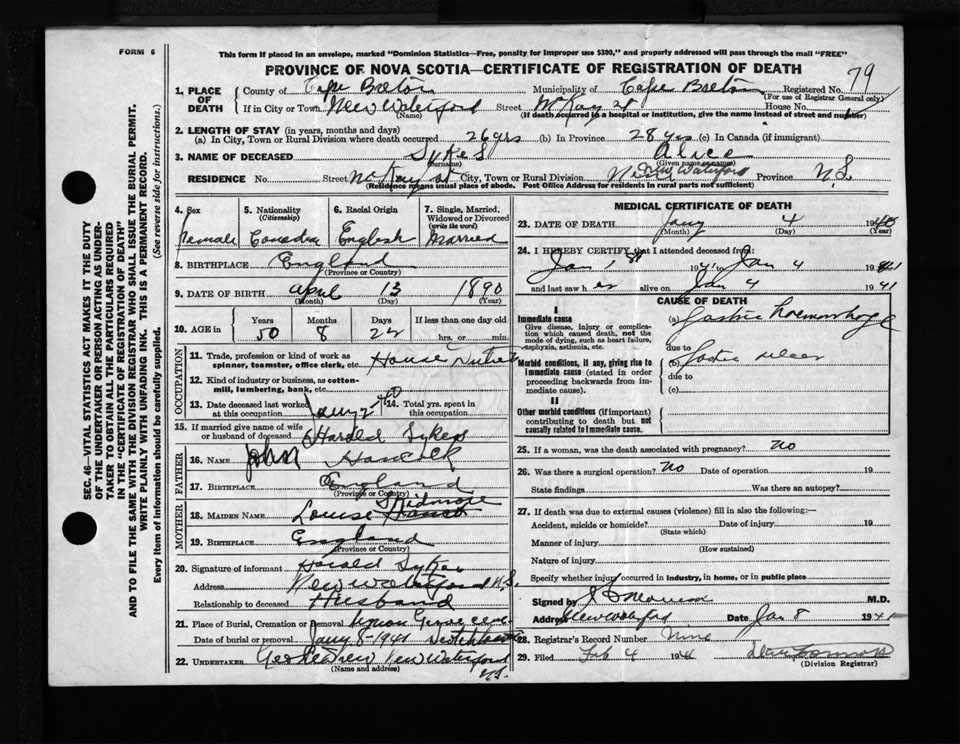 FORM 6
This form if placed in an envelope, marked "Dominion Statistics—Free, penalty for improper use $300," and properly addressed will pass through the mail "FREE"
PROVINCE OF NOVA SCOTIA—CERTIFICATE OF REGISTRATION OF DEATH
79
1. PLACE OF DEATH
County of Cape Breton Municipality of Cape Breton Registered No.
(For use of Registrar General only)
If in City or Town New Waterford Street McKay St House No.
(Name) (If death occurred in a hospital or institution, give the name instead of street and number)
2. LENGTH OF STAY (in years, months and days)
(a) In City, Town or Rural Division where death occurred 26 yrs (b) In Province 28 yrs (c) In Canada (if immigrant)
3. NAME OF DECEASED Sykes Alice
(Surname) (Given name or names)
RESIDENCE No. Street McKay St City, Town or Rural Division New Waterford Province N.S.
(Residence means usual place of abode. Post Office Address for residents in rural parts not sufficient)
4. Sex Female
5. Nationality (Citizenship)
6. Racial Origin English
7. Single, Married, Widowed or Divorced (write the word) Married
8. BIRTHPLACE England
(Province or Country)
9. DATE OF BIRTH April 13 1890
(Month) (Day) (Year)
10. AGE in Years Months Days If less than one day old
50 8 22 hrs. or min.
OCCUPATION
11. Trade, profession or kind of work as spinner, teamster, office clerk, etc. House
12. Kind of industry or business, as cotton-mill, lumbering, bank, etc.
13. Date deceased last worked at this occupation
14. Total yrs. spent in this occupation
15. If married give name of wife or husband of deceased Harold Sykes
FATHER
16. Name John Hancock
17. Birthplace England
(Province or Country)
MOTHER
18. Maiden Name Louise Skidmore
19. Birthplace England
(Province or Country)
20. Signature of informant Harold Sykes
Address New Waterford N.S.
Relationship to deceased Husband
21. Place of Burial, Cremation or Removal
Date of burial or removal Jany 8-1941
22. UNDERTAKER New Waterford
(Name and address)
N.S.
MEDICAL CERTIFICATE OF DEATH
23. DATE OF DEATH Jany 4
(Month) (Day) (Year)
24. I HEREBY CERTIFY that I attended deceased from:
Jan 1st 1941 to Jan 4 1941
and last saw her alive on Jan 4 1941
CAUSE OF DEATH
I
Immediate cause
Give disease, injury or complication which caused death, not the mode of dying, such as heart failure, asphyxia, asthenia, etc.
(a) Gastric haemorrhage
due to
Morbid conditions, if any, giving rise to immediate cause (stated in order proceeding backwards from immediate cause).
(b) Gastric ulcer
due to
(c)
II
Other morbid conditions (if important) contributing to death but not causally related to immediate cause.
25. If a woman, was the death associated with pregnancy? No
26. Was there a surgical operation? No Date of operation 19
State findings Was there an autopsy?
27. If death was due to external causes (violence) fill in also the following:—
Accident, suicide or homicide? Date of injury 19
(State which)
Manner of injury
(How sustained)
Nature of injury
Specify whether injury occurred in industry, in home, or in public place
Signed by M.D.
Address New Waterford Date Jan 8 1941
28. Registrar's Record Number Nine
29. Filed Feb 4 1941
(Division Registrar)
SEC. 46—VITAL STATISTICS ACT MAKES IT THE DUTY
OF THE UNDERTAKER OR PERSON ACTING AS UNDER-
TAKER TO OBTAIN ALL THE PARTICULARS REQUIRED
IN THE "CERTIFICATE OF REGISTRATION OF DEATH"
AND TO FILE THE SAME WITH THE DIVISION REGISTRAR WHO SHALL ISSUE THE BURIAL PERMIT.
WRITE PLAINLY WITH UNFADING INK. THIS IS A PERMANENT RECORD.
Every item of information should be carefully supplied. (See reverse side for instructions.)